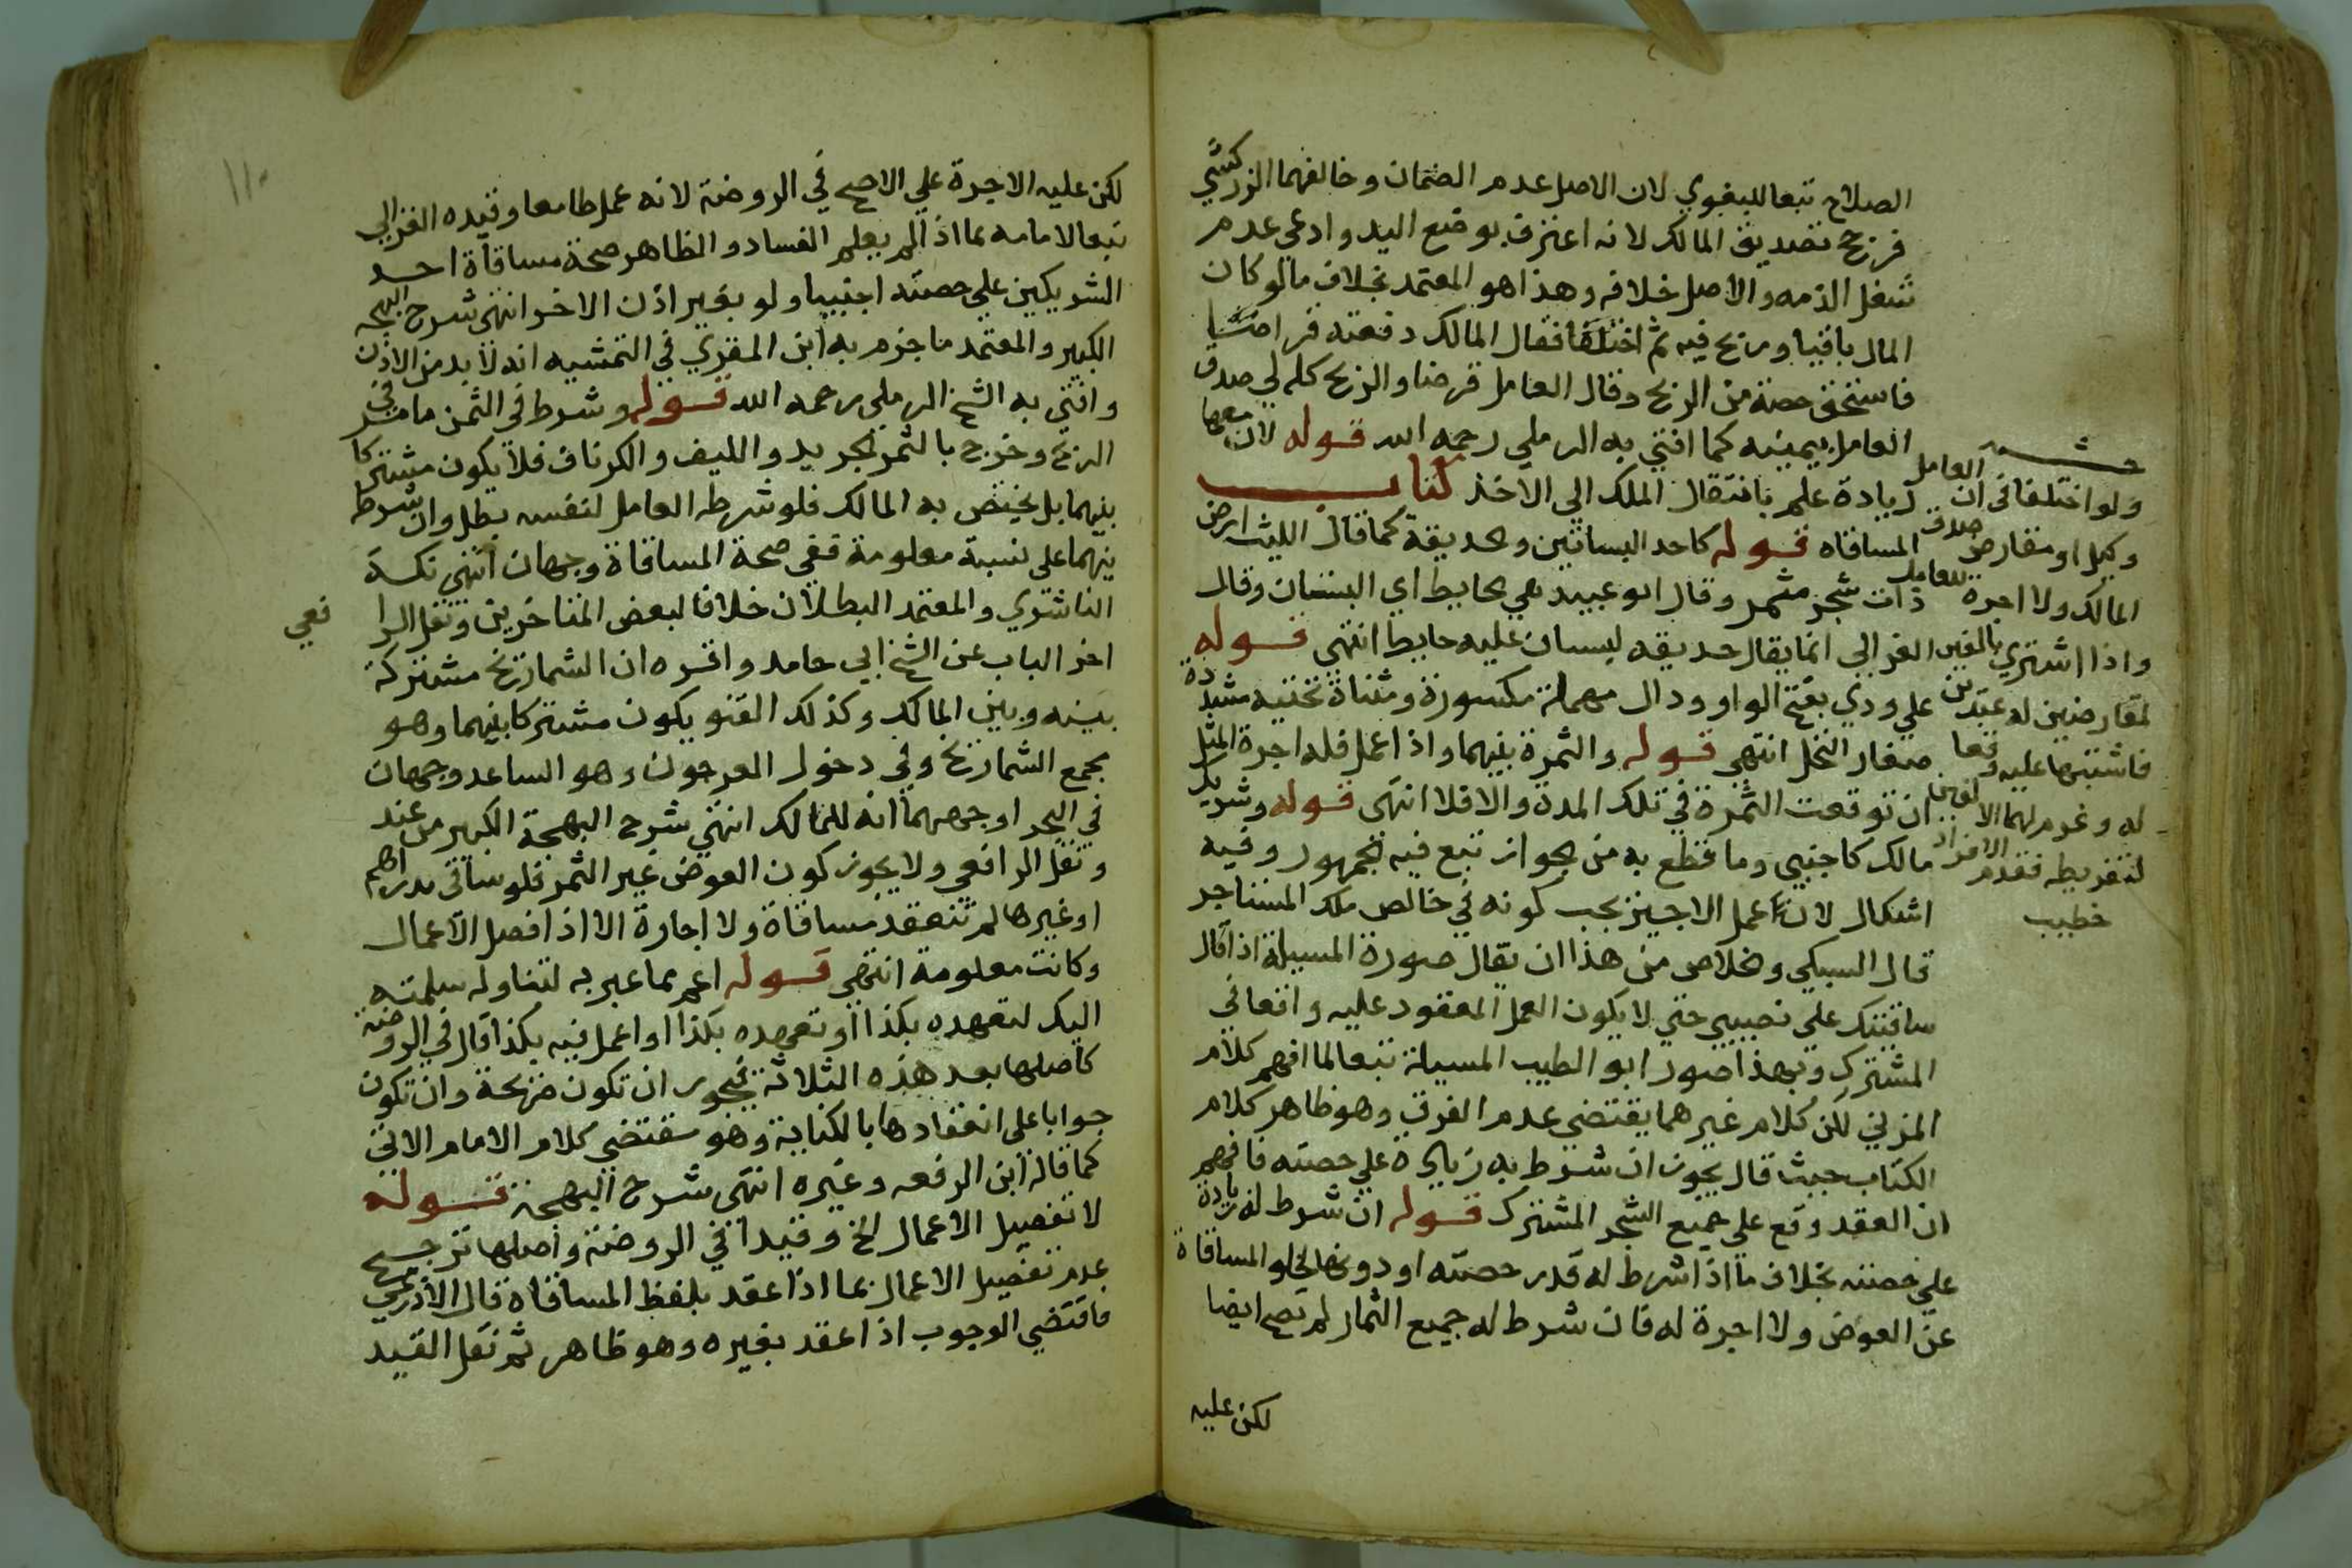 الصلاح تبعا للبغوي لان الاصل عدم الضمان وخالفهما الزركشي
فرجح تصديق المالك لانه اعترف بوضع اليد وادعي عدم
شغل الذمه والاصل خلافه وهذا هو المعتمد بخلاف مالو كان
المال باقيا وربح فيه ثم اختلفا فقال المالك دفعته قراضا
فاستحق حصة من الربح وقال العامل قرضا والربح كله لي صدق
العامل بيمينه كما افتي به الرملي رحمه الله قوله لان معها
زيادة علم بانتقال الملك الي الاخذ كتاب
المساقاه قوله كاحد البساتين وحديقة كما قال الليث ارض
ذات شجر مثمر وقال ابو عبيد هي حايط اي البستان وقال
الغزالي انما يقال حديقه لبستان عليه حايط انتهي قوله
علي ودي بفتح الواو ودال مهملة مكسورة ومثناة تحتيه مشددة
صغار النخل انتهي قوله والثمرة بينهما واذا عمل فله اجرة المثل
ان توقعت الثمرة في تلك المدة والا فلا انتهى قوله وشريك
مالك كاجنبي وما قطع به من الجواز تبع فيه الجمهور وفيه
اشكال لان عمل الاجير يجب كونه في خالص ملك المستاجر
قال السبكي وخلاص من هذا ان يقال صورة المسيلة اذا قال
ساقيتك علي نصيبي حتي لا يكون العمل المعقود عليه واقعا في
المشترك وبهذا صور ابو الطيب المسيلة تبعا لما افهم كلام
المزني لكن كلام غيرهما يقتضي عدم الفرق وهو ظاهر كلام
الكتاب حيث قال يجوز ان شرط به زيادة علي حصته فافهم
ان العقد وقع علي جميع الشجر المشترك قوله ان شرط له زيادة
علي حصته بخلاف ما اذا شرط له قدر حصته او دونها لخلو المساقاة
عن العوض ولا اجرة له فان شرط له جميع الثمار لم تصح ايضا
لكن عليه
ولو اختلفا في ان العامل
وكيل او مقارض صدق
المالك ولا اجرة للعامل
واذا اشتري بالفين
لمقارضين له عبدين
فاشتبها عليه وقعا
له وغرم لهما الالفين
لتفريطه بعدم الافراد
خطيب
لكن عليه الاجرة علي الاصح في الروضة لانه عمل طامعا وقيده الغزالي
تبعا لامامه بما اذا لم يعلم الفساد والظاهر صحة مساقاة احد
الشريكين علي حصته اجنبيا ولو بغير اذن الاخر انتهى شرح البهجه
الكبير والمعتمد ما جزم به ابن المقري في التمشيه انه لا بد من الاذن
وافتي به الشيخ الرملي رحمه الله قوله وشرط في الثمن ما مر في
الربح وخرج بالثمر الجريد والليف والكرناف فلا يكون مشتركا
بينهما بل يختص به المالك فلو شرطه العامل لنفسه بطل وان شرط
بينهما على نسبة معلومة ففي صحة المساقاة وجهان انتهي نكت
الناشري والمعتمد البطلان خلافا لبعض المتاخرين ونقل الرا فعي
اخر الباب عن الشيخ ابي حامد واقره ان الشماريخ مشتركة
بينه وبين المالك وكذلك القنو يكون مشتركا بينهما وهو
مجمع الشماريخ وفي دخول العرجون وهو الساعد وجهان
في البحر اوجههما انه للمالك انتهي شرح البهجة الكبير من عند
ونقل الرافعي ولا يجوز كون العوض غير الثمر فلو ساقى بدراهم
او غيرها لم تنعقد مساقاة ولا اجارة الا اذا فصل الاعمال
وكانت معلومة انتهى قوله اعم مما عبر به لتناوله سلمته
اليك لتعهده بكذا او تعهده بكذا او اعمل فيه بكذا قال في الروضة
كاصلها بعد هذه الثلاثة يجوز ان تكون صريحة وان تكون
جوابا على انعقادها بالكناية وهو مقتضي كلام الامام الاتي
كما قاله ابن الرفعه وغيره انتهى شرح البهجة قوله
لا تفصيل الاعمال الخ وقيدا في الروضة واصلها ترجيح
عدم تفصيل الاعمال بما اذا عقد بلفظ المساقاه قال الاذرعي
فاقتضي الوجوب اذا عقد بغيره وهو ظاهر ثم نقل القيد
١١٠